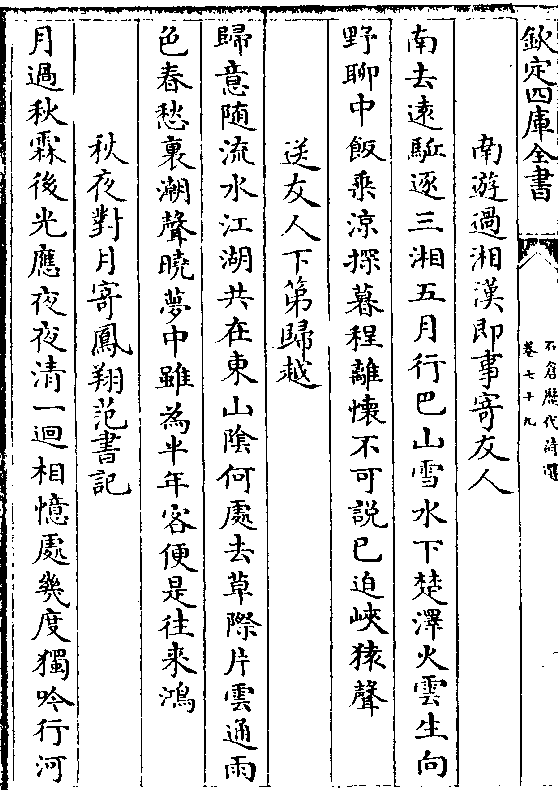 欽定四庫全書
石倉歷代詩選
卷七十九
南遊過湘漢即事寄友人
南去遠駈逐三湘五月行巴山雪水下楚澤火雲生向
野聊中飯乘涼探暮程離懷不可説已迫峽猿聲
送友人下第歸越
歸意随流水江湖共在東山陰何處去草際片雲通雨
色春愁裏潮聲曉夢中雖為半年客便是往來鴻
秋夜對月寄鳳翔范書記
月過秋霖後光應夜夜清一迴相憶處幾度獨吟行河